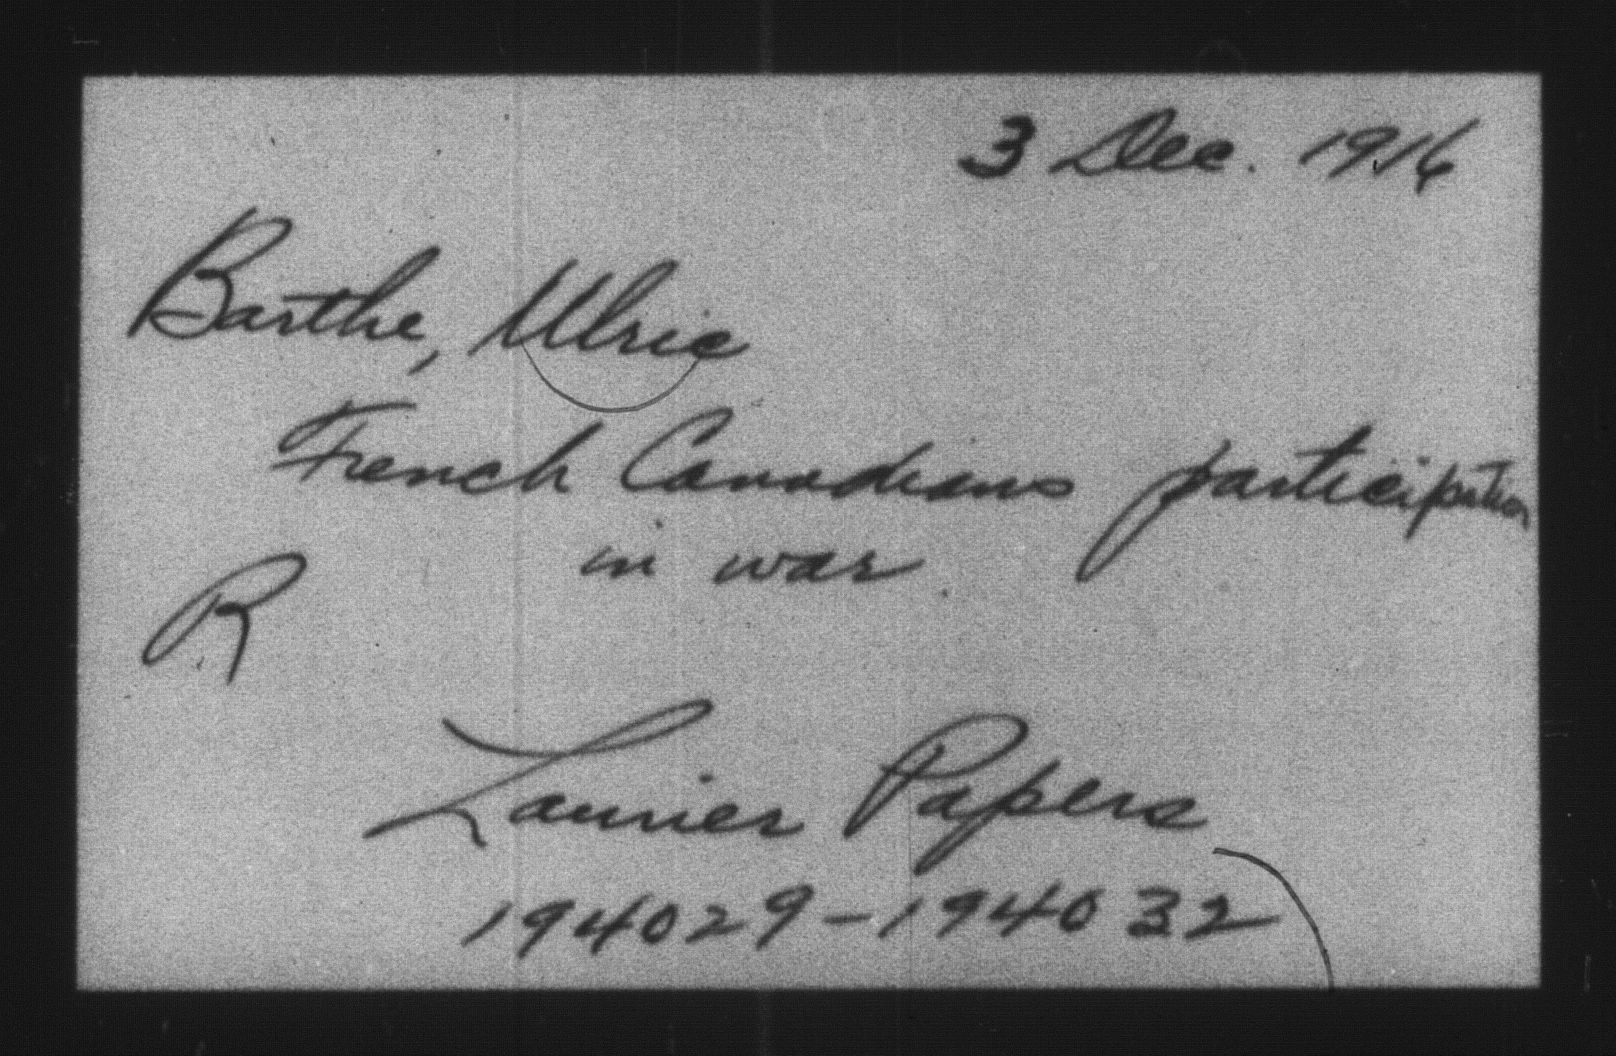 3 Dec. 1916
Barthe, Ulric
French Canadians participation
in war
R
Laurier Papers
194029-194032